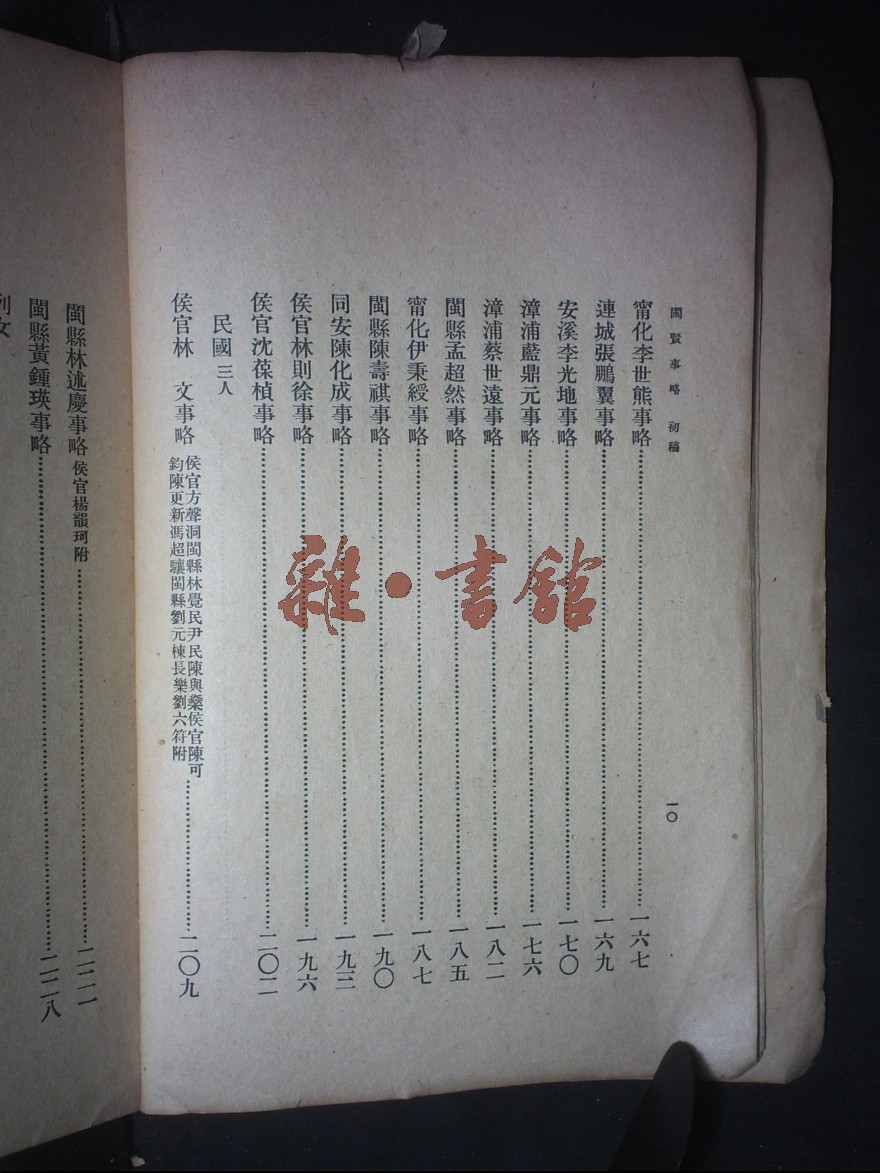 閩賢事略 初稿
一〇
甯化李世熊事略……一六七
連城張鵬翼事略……一六九
安溪李光地事略……一七〇
漳浦藍鼎元事略……一七六
漳浦蔡世遠事略……一八二
閩縣孟超然事略……一八五
甯化伊秉綬事略……一八七
閩縣陳壽祺事略……一九〇
同安陳化成事略……一九三
侯官林則徐事略……一九六
侯官沈葆楨事略……二〇二
民國 三人
侯官林 文事略 侯官方聲洞閩縣林覺民尹民陳與燊侯官陳可
鈞陳更新馮超驤閩縣劉元棟長樂劉六符附……二〇九
閩縣林述慶事略 侯官楊韻珂附……二二二
閩縣黃鍾瑛事略……二二八
列女
雜·書館